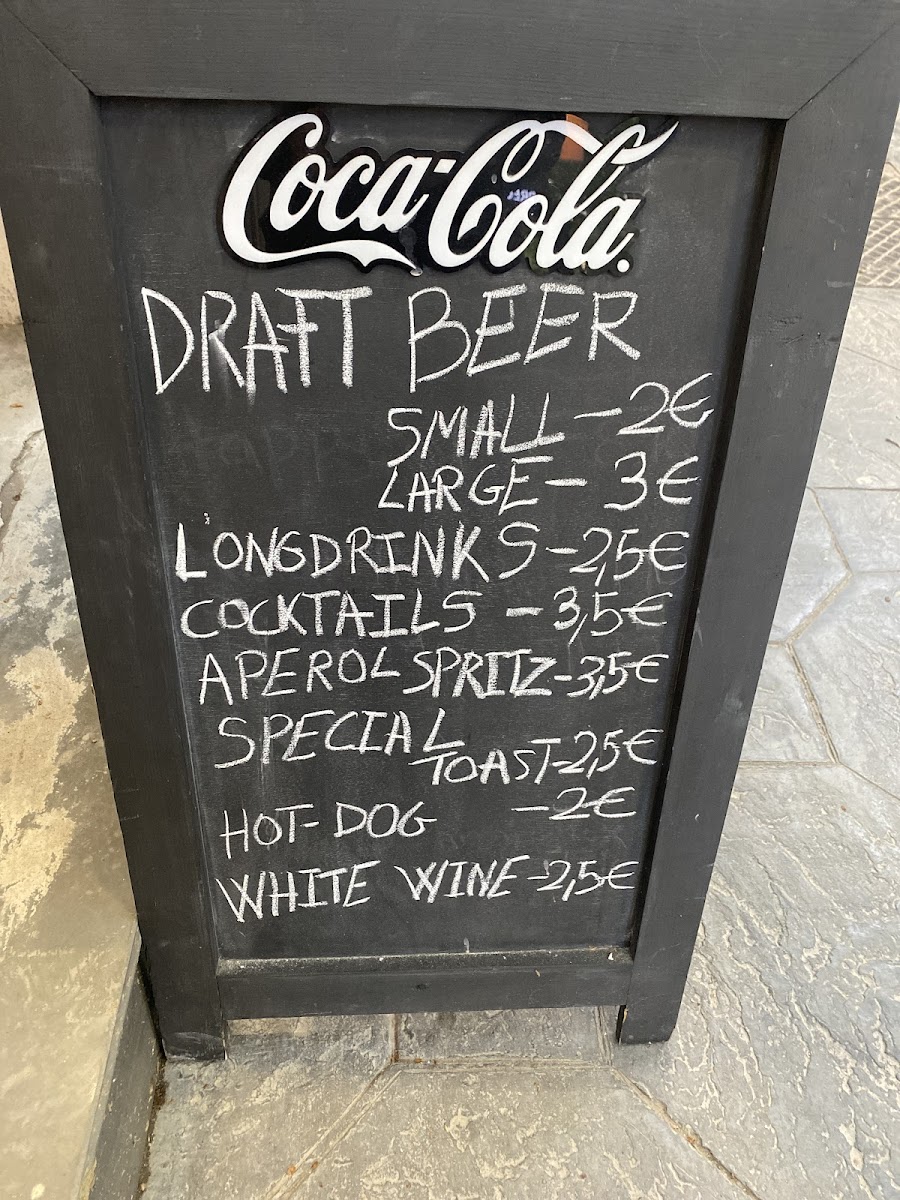 Coca-Cola
DRAFT BEER
SMALL - 2€
LARGE - 3€
LONGDRINKS - 2,5€
COCKTAILS - 3,5€
APEROL SPRITZ - 3,5€
SPECIAL
TOAST - 2,5€
HOT-DOG - 2€
WHITE WINE - 2,5€